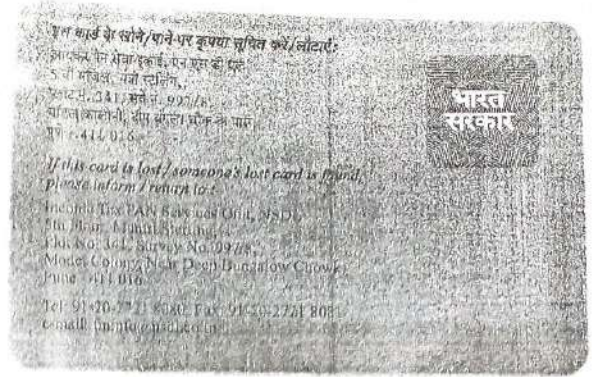 इस कार्ड के खोने/पाने पर कृपया सूचित करें/लौटाएं:
आयकर पैन सेवा इकाई, एन एस डी एल
5 वी मंजिल, मंत्री स्टर्लिंग,
प्लॉट नं. 341, सर्वे नं. 997/8,
मॉडल कालोनी, दीप बंगला चौक के पास,
- 411 016.
भारत
सरकार
If this card is lost / someone's lost card is found,
please inform / return to :
Income Tax PAN Services Unit, NSDL
5th Floor, Mantri Sterling,
Plot No. 341, Survey No. 997/8,
Model Colony, Near Deep Bungalow Chowk,
Pune - 411 016
Tel: 91-20-2721 8080, Fax: 91-20-2721 8081
e-mail: